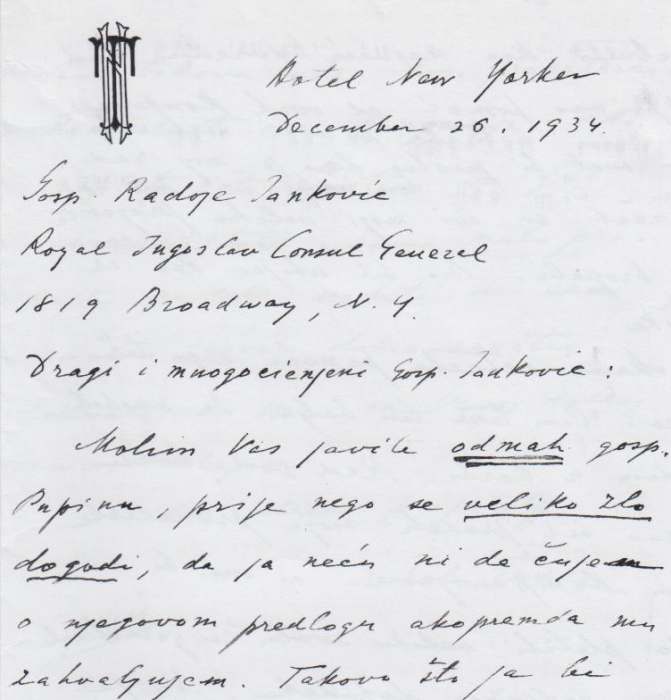 Hotel New Yorker
December 26. 1934.
Gosp. Radoje Janković
Royal Jugoslav Consul General
1819 Broadway, N.Y.
Dragi i mnogocienjeni Gosp. Janković:
Molim Vas javite odmah gosp.
Pupinu, prije nego se veliko zlo
dogodi, da ja neću ni da čujem
o njegovom predlogu akopremda mu
zahvaljujem. Takovo što ja bi